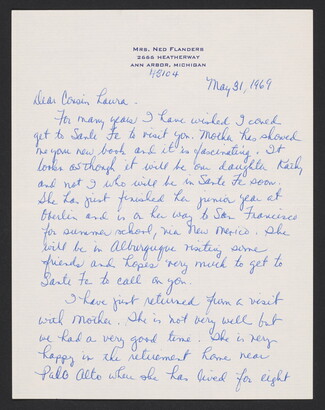 MRS. NED FLANDERS
2566 HEATHERWAY
ANN ARBOR, MICHIGAN
48104
May 31, 1969
Dear Cousin Laura.
For many years I have wished I could
get to Santa Fe to visit you. Mother has showed
me your new book and it is fascinating. It
looks as though it will be our daughter Kathy
and not I who will be in Santa Fe soon.
She has just finished her junior year at
Oberlin and is on her way to San Francisco
for summer school, via New Mexico. She
will be in Alburquerque visiting some
friends and hopes very much to get to
Santa Fe to call on you.
I have just returned from a visit
with Mother. She is not very well but
we had a very good time. She is very
happy in the retirement home near
Palo Alto where she has lived for eight